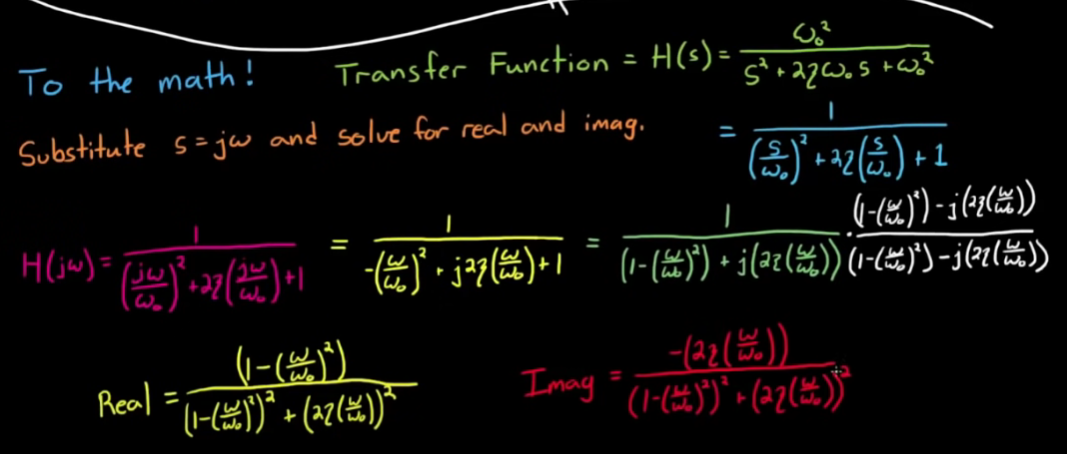 To the math! Transfer Function = H(s) = ω₀² / (s² + 2ζω₀s + ω₀²)
Substitute s = jω and solve for real and imag. = 1 / ((s/ω₀)² + 2ζ(s/ω₀) + 1)
H(jω) = 1 / ((jω/ω₀)² + 2ζ(jω/ω₀) + 1) = 1 / (-(ω/ω₀)² + j2ζ(ω/ω₀) + 1) = 1 / ((1-(ω/ω₀)²) + j(2ζ(ω/ω₀))) · ((1-(ω/ω₀)²) - j(2ζ(ω/ω₀))) / ((1-(ω/ω₀)²) - j(2ζ(ω/ω₀)))
Real = (1-(ω/ω₀)²) / ((1-(ω/ω₀)²)² + (2ζ(ω/ω₀))²) Imag = -(2ζ(ω/ω₀)) / ((1-(ω/ω₀)²)² + (2ζ(ω/ω₀))²)